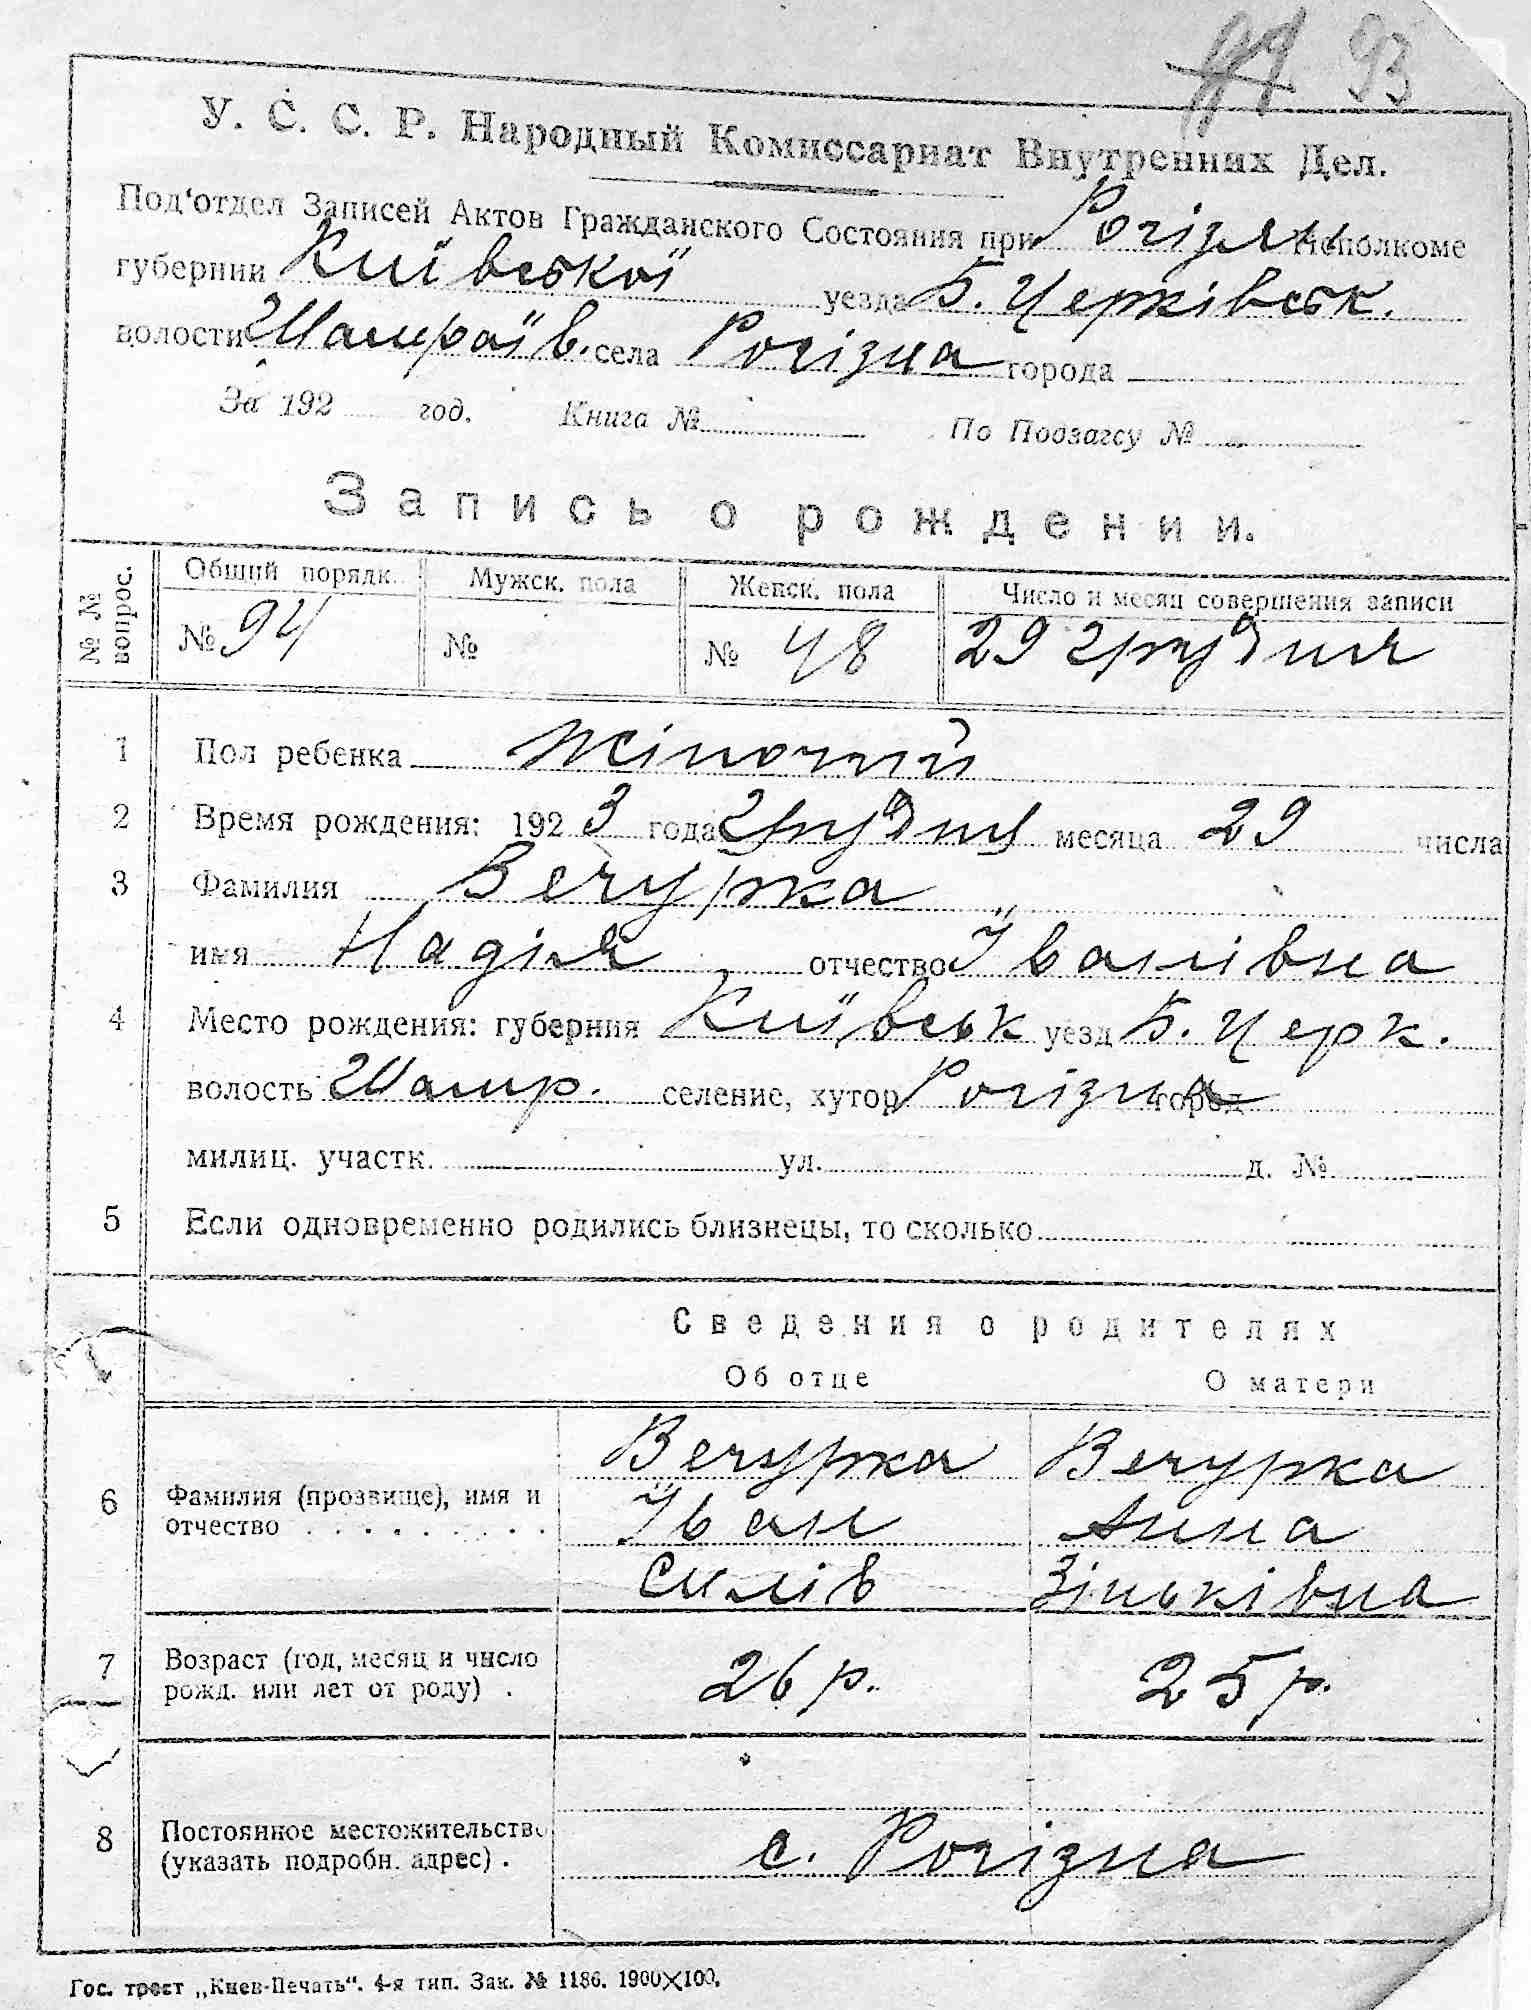 93
У. С. С. Р. Народный Комиссариат Внутренних Дел.
Под'отдел Записей Актов Гражданского Состояния при Рогізнян. Исполкоме
губернии Київської уезда Б. Церківськ.
волости Шамраїв. села Рогізна города
За 192 год. Книга № По Подзагсу №
Запись о рождении.
№ № вопрос. Общий порядк. Мужск. пола Женск. пола Число и месяц совершения записи
№ 94 № № 48 29 грудня
1 Пол ребенка жіночий
2 Время рождения: 192 3 года грудня месяца 29 числа
3 Фамилия Вечурка
имя Надія отчество Іванівна
4 Место рождения: губерния Київськ уезд Б. Церк.
волость Шамр. селение, хутор Рогізна город
милиц. участк. ул. д. №
5 Если одновременно родились близнецы, то сколько
Сведения о родителях
Об отце О матери
Вечурка Вечурка
6 Фамилия (прозвище), имя и Іван Анна
отчество Силів Зіньківна
7 Возраст (год, месяц и число 26 р. 25 р.
рожд. или лет от роду) .
8 Постоянное местожительство
(указать подробн. адрес) . с. Рогізна
Гос. трест „Киев-Печать“. 4-я тип. Зак. № 1186. 1900×100.